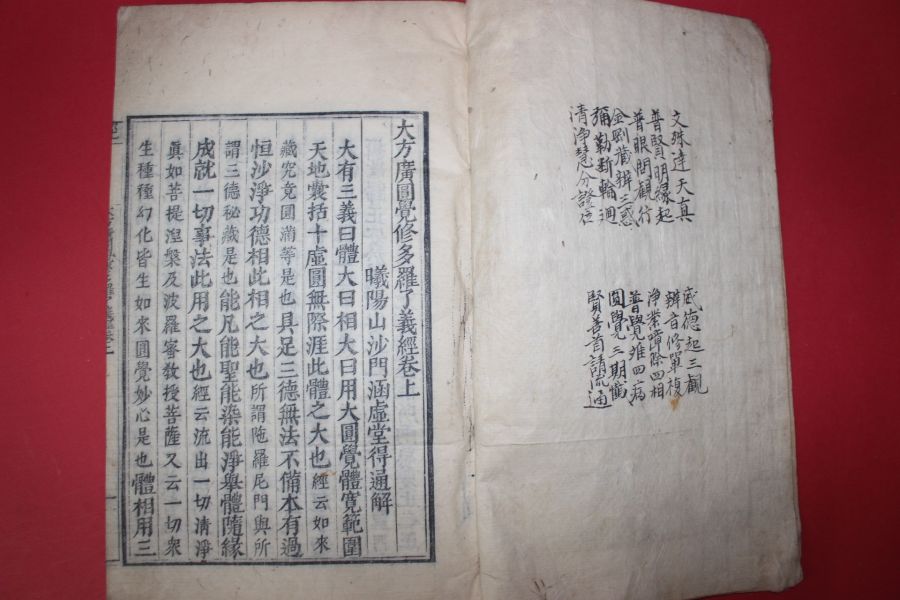 文殊達天真
普賢明緣起
普眼問觀行
金剛藏辨三惑
彌勒斷輪迴
清淨慧分證位
威德起三觀
辨音修單複
淨業障除四相
普覺離四病
圓覺三期懺
賢善首請流通
大方廣圓覺修多羅了義經卷上
曦陽山沙門涵虛堂得通解
大有三義曰體大曰相大曰用大圓覺體寬範圍
天地囊括十虛圓無際涯此體之大也經云如來
藏究竟圓滿等是也具足三德無法不備本有過
恒沙淨功德相此相之大也所謂陁羅尼門與所
謂三德秘藏是也能凡能聖能染能淨舉體隨緣
成就一切事法此用之大也經云流出一切清淨
眞如菩提涅槃及波羅蜜敎授菩薩又云一切衆
生種種幻化皆生如來圓覺妙心是也體相用三